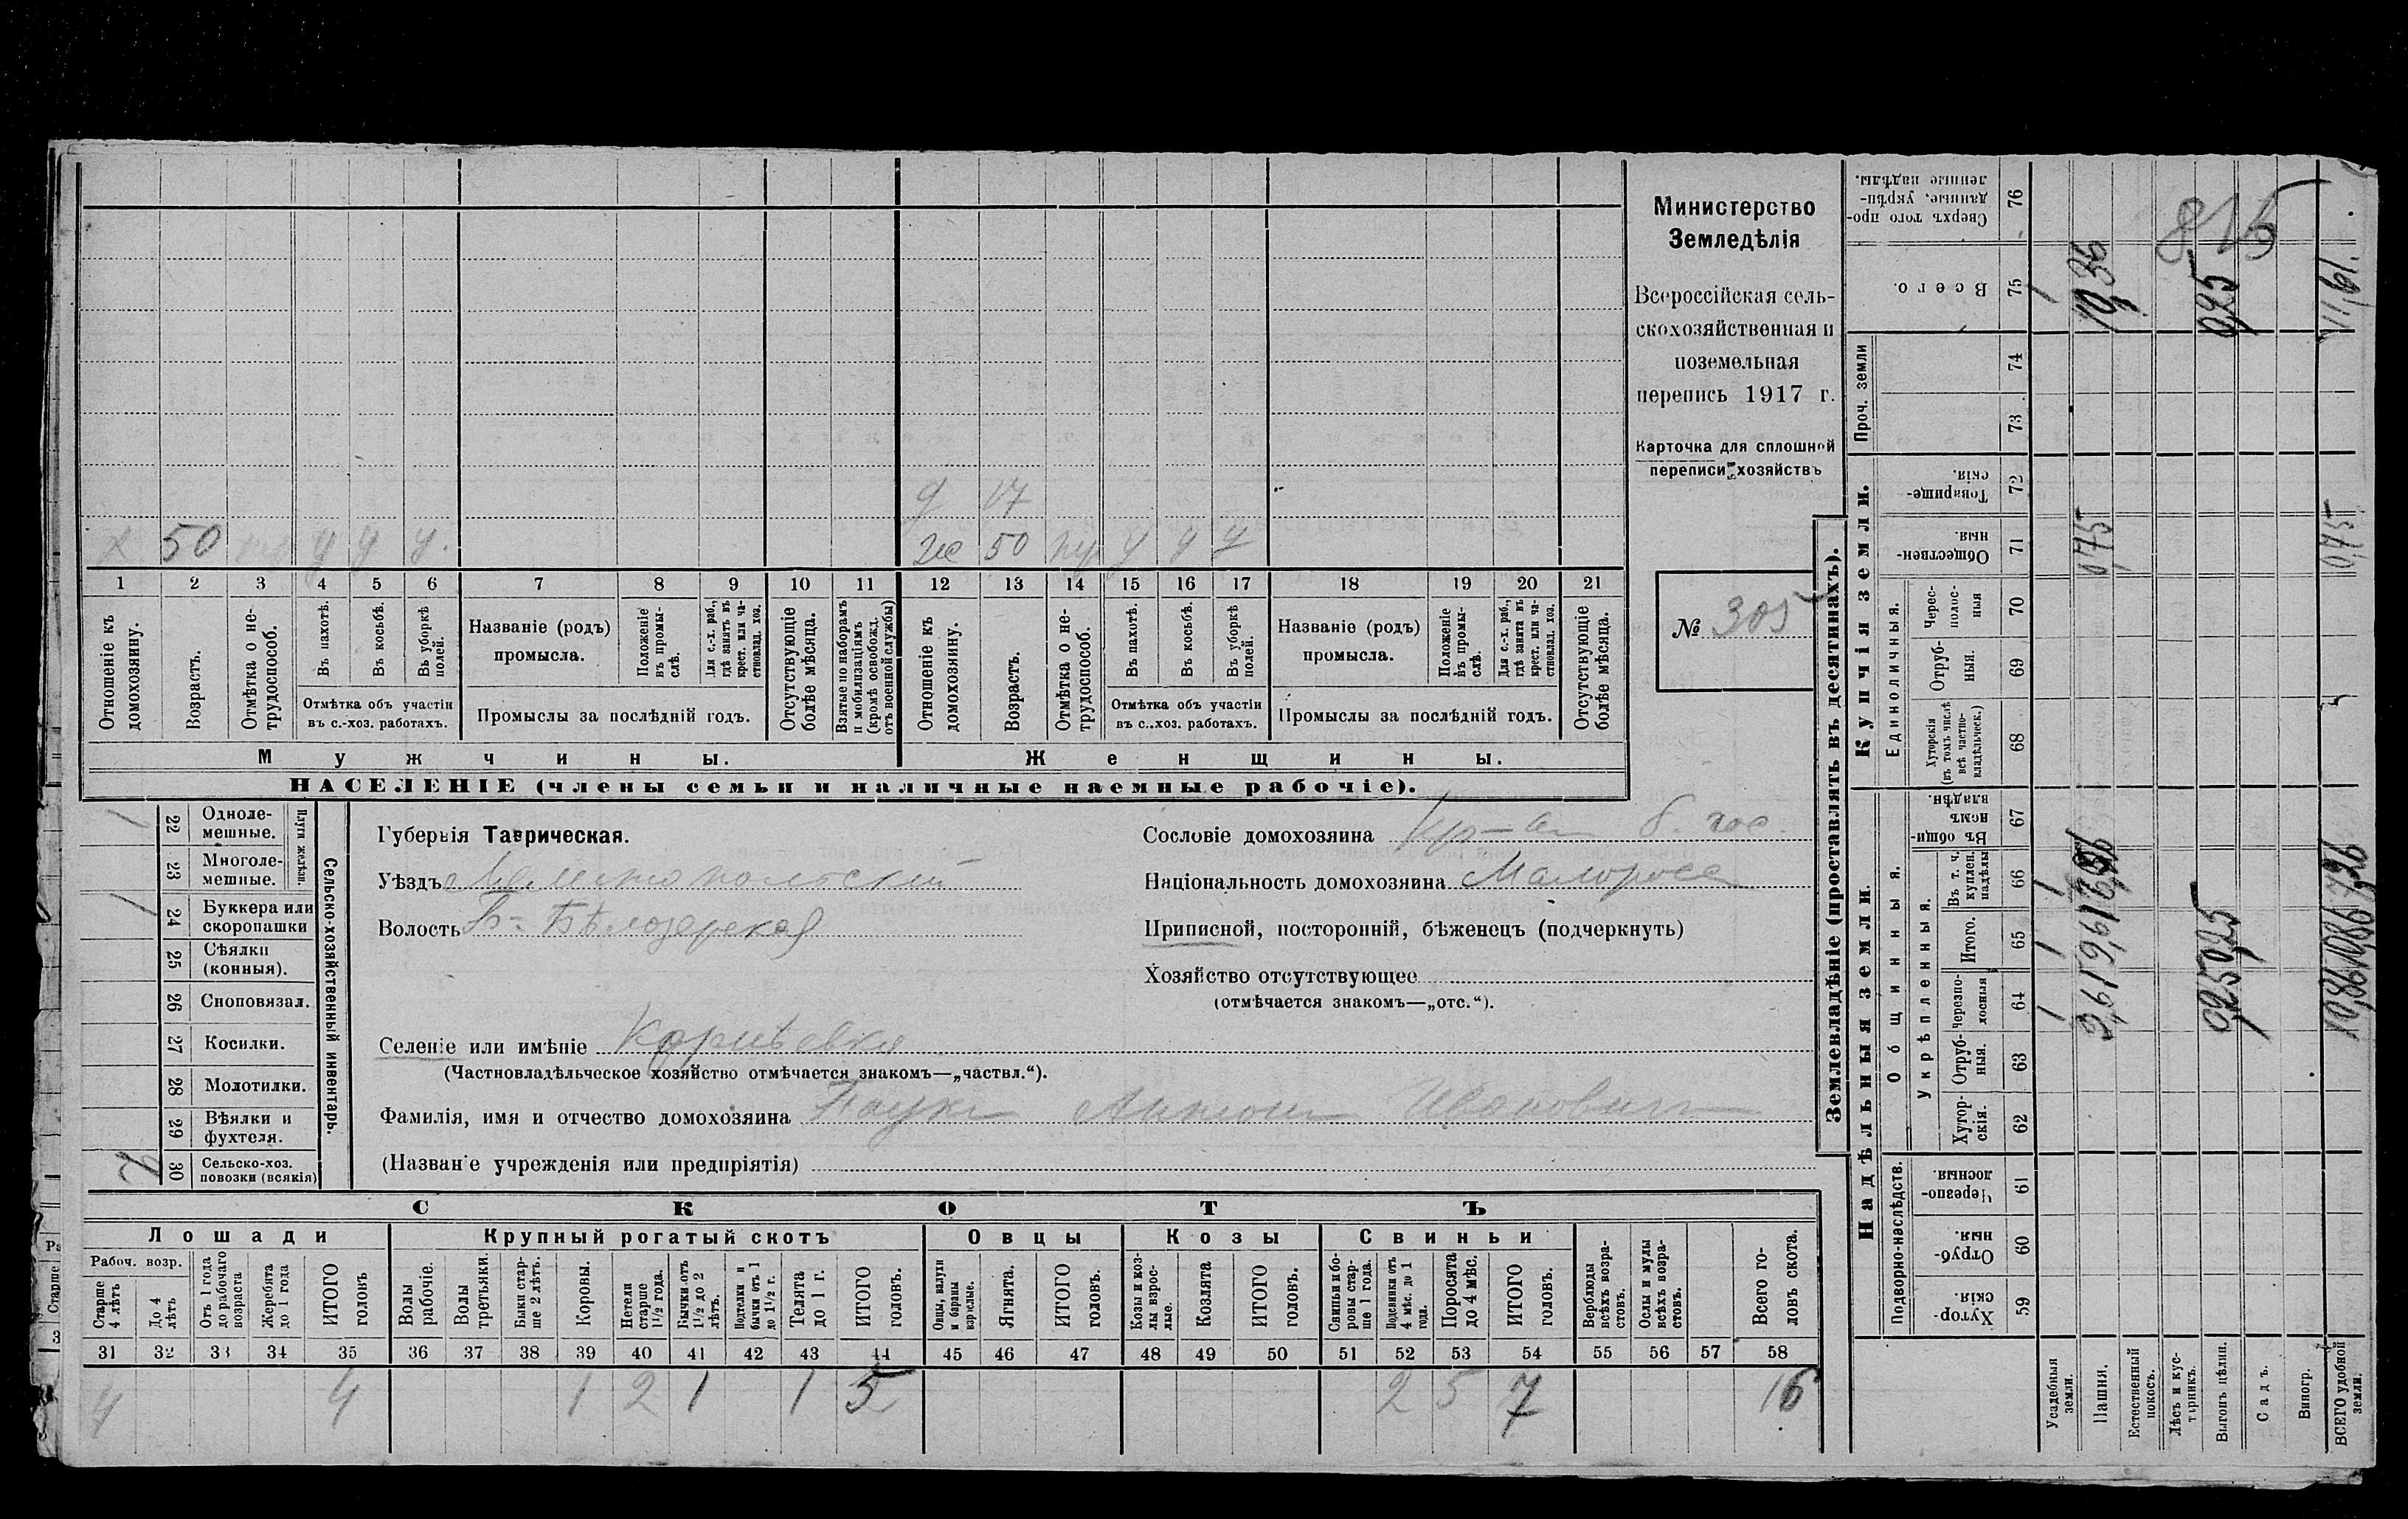 Министерство
Земледѣлія
Всероссійская сель-
скохозяйственная и
поземельная
перепись 1917 г.
Карточка для сплошной
переписи хозяйствъ
№ 305
815
д 17
х 50 у у у.
ж 50 у у у
1 2 3 4 5 6 7 8 9 10 11 12 13 14 15 16 17 18 19 20 21
Отношеніе къ домохозяину.
Возрастъ.
Отмѣтка о не-трудоспособ.
Въ пахотѣ.
Въ косьбѣ.
Въ уборкѣ полей.
Отмѣтка объ участіи въ с.-хоз. работахъ.
Названіе (родъ) промысла.
Положеніе въ промы-слѣ.
Для с.-х. раб., гдѣ занятъ въ крест. или ча-стновлад. хоз.
Промыслы за послѣдній годъ.
Отсутствующіе болѣе мѣсяца.
Взятые по наборамъ и мобилизаціямъ (кромѣ освобожд. отъ военной службы)
Отношеніе къ домохозяину.
Возрастъ.
Отмѣтка о не-трудоспособ.
Въ пахотѣ.
Въ косьбѣ.
Въ уборкѣ полей.
Отмѣтка объ участіи въ с..хоз. работахъ.
Названіе (родъ) промысла.
Положеніе въ промы-слѣ.
Для с.-х. раб., гдѣ занята въ крест. или ча-стновлад. хоз.
Промыслы за послѣдній годъ.
Отсутствующіе болѣе мѣсяца.
Мужчины. Женщины.
НАСЕЛЕНІЕ (члены семьи и наличные наемные рабочіе).
Сельско-хозяйственный инвентарь.
Плуги желѣзн.
1 22 Одноле-мешные.
23 Многоле-мешные.
1 24 Буккера или скоропашки
25 Сѣялки (конныя).
26 Сноповязал.
27 Косилки.
28 Молотилки.
29 Вѣялки и фухтеля.
2 30 Сельско-хоз. повозки (всякія)
Губернія Таврическая.
Уѣздъ Мелитопольскій
Волость Б-Бѣлозерская
Селеніе или имѣніе Корнѣевка
(Частновладѣльческое хозяйство отмѣчается знакомъ—„частвл.“).
Фамилія, имя и отчество домохозяина Паукъ Антонъ Ивановичъ
(Названіе учрежденія или предпріятія)
Сословіе домохозяина Кр-нъ б. гос.
Національность домохозяина Малороссъ
Приписной, посторонній, бѣженецъ (подчеркнуть)
Хозяйство отсутствующее
(отмѣчается знакомъ—„отс.“).
СКОТЪ
Лошади Крупный рогатый скотъ Овцы Козы Свиньи
Рабоч. возр.
Старше 4 лѣтъ
До 4 лѣтъ
Отъ 1 года до рабочаго возраста
Жеребята до 1 года
ИТОГО головъ
Волы рабочіе.
Волы третьяки.
Быки стар-ше 2 лѣтъ.
Коровы.
Нетели старше 1 1/2 года.
Бычки отъ 1 1/2 до 2 лѣтъ.
Подтелки и бычки отъ 1 до 1 1/2 г.
Телята до 1 г.
ИТОГО головъ.
Овцы, валухи и бараны взрослые.
Ягнята.
ИТОГО головъ.
Козы и коз-лы взрос-лые.
Козлята
ИТОГО головъ.
Свиньи и бо-ровы стар-ше 1 года.
Подсвинки отъ 4 мѣс. до 1 года.
Поросята до 4 мѣс.
ИТОГО головъ.
Верблюды всѣхъ возра-стовъ.
Ослы и мулы всѣхъ возра-стовъ.
Всего го-ловъ скота.
31 32 33 34 35 36 37 38 39 40 41 42 43 44 45 46 47 48 49 50 51 52 53 54 55 56 57 58
4 4 1 2 1 1 5 2 5 7 16
Землевладѣніе (проставлять въ десятинахъ).
Надѣльныя земли. Купчія земли. Проч. земли
Подворно-наслѣдств.
Общинныя.
Укрѣпленныя.
Единоличныя.
Хутор-скія. 59
Отруб-ныя. 60
Черезпо-лосныя 61
Хутор-скія. 62
Отруб-ныя. 63
Черезпо-лосныя 64
Итого. 65
Въ т. ч. куплен. надѣлы 66
Въ общи-номъ владѣн. 67
Хуторскія (въ томъ числѣ всѣ частно-владѣльческ.) 68
Отруб-ныя. 69
Черес-полос-ныя 70
Обществен-ныя. 71
Товарище-скія. 72
73
74
Всего. 75
Сверхъ того про-данные, укрѣп-ленные надѣлы. 76
Усадебныя земли. 1 1 1 1
Пашня. 9,61 9,61 0,75 10,36
Естественный покосъ.
Лѣсъ и кус-тарникъ.
Выгонъ цѣлин. 0,25 0,25 0,25
Садъ.
Виногр.
ВСЕГО удобной земли. 10,86 10,86 7,26 0,75 11,61.